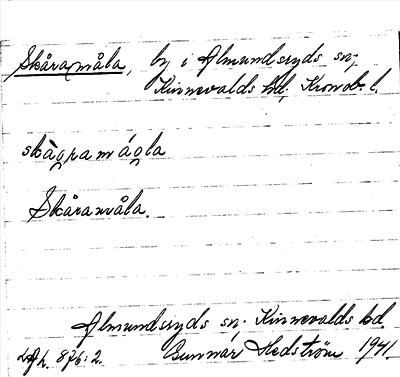 Skåramåla, by i Almundsryds sn;
Kinnevalds hd; Kronob. l.
skàǫramáǫla
Skåramåla.
Almundsryds sn. Kinnevalds hd.
Gunnar Hedström 1941.